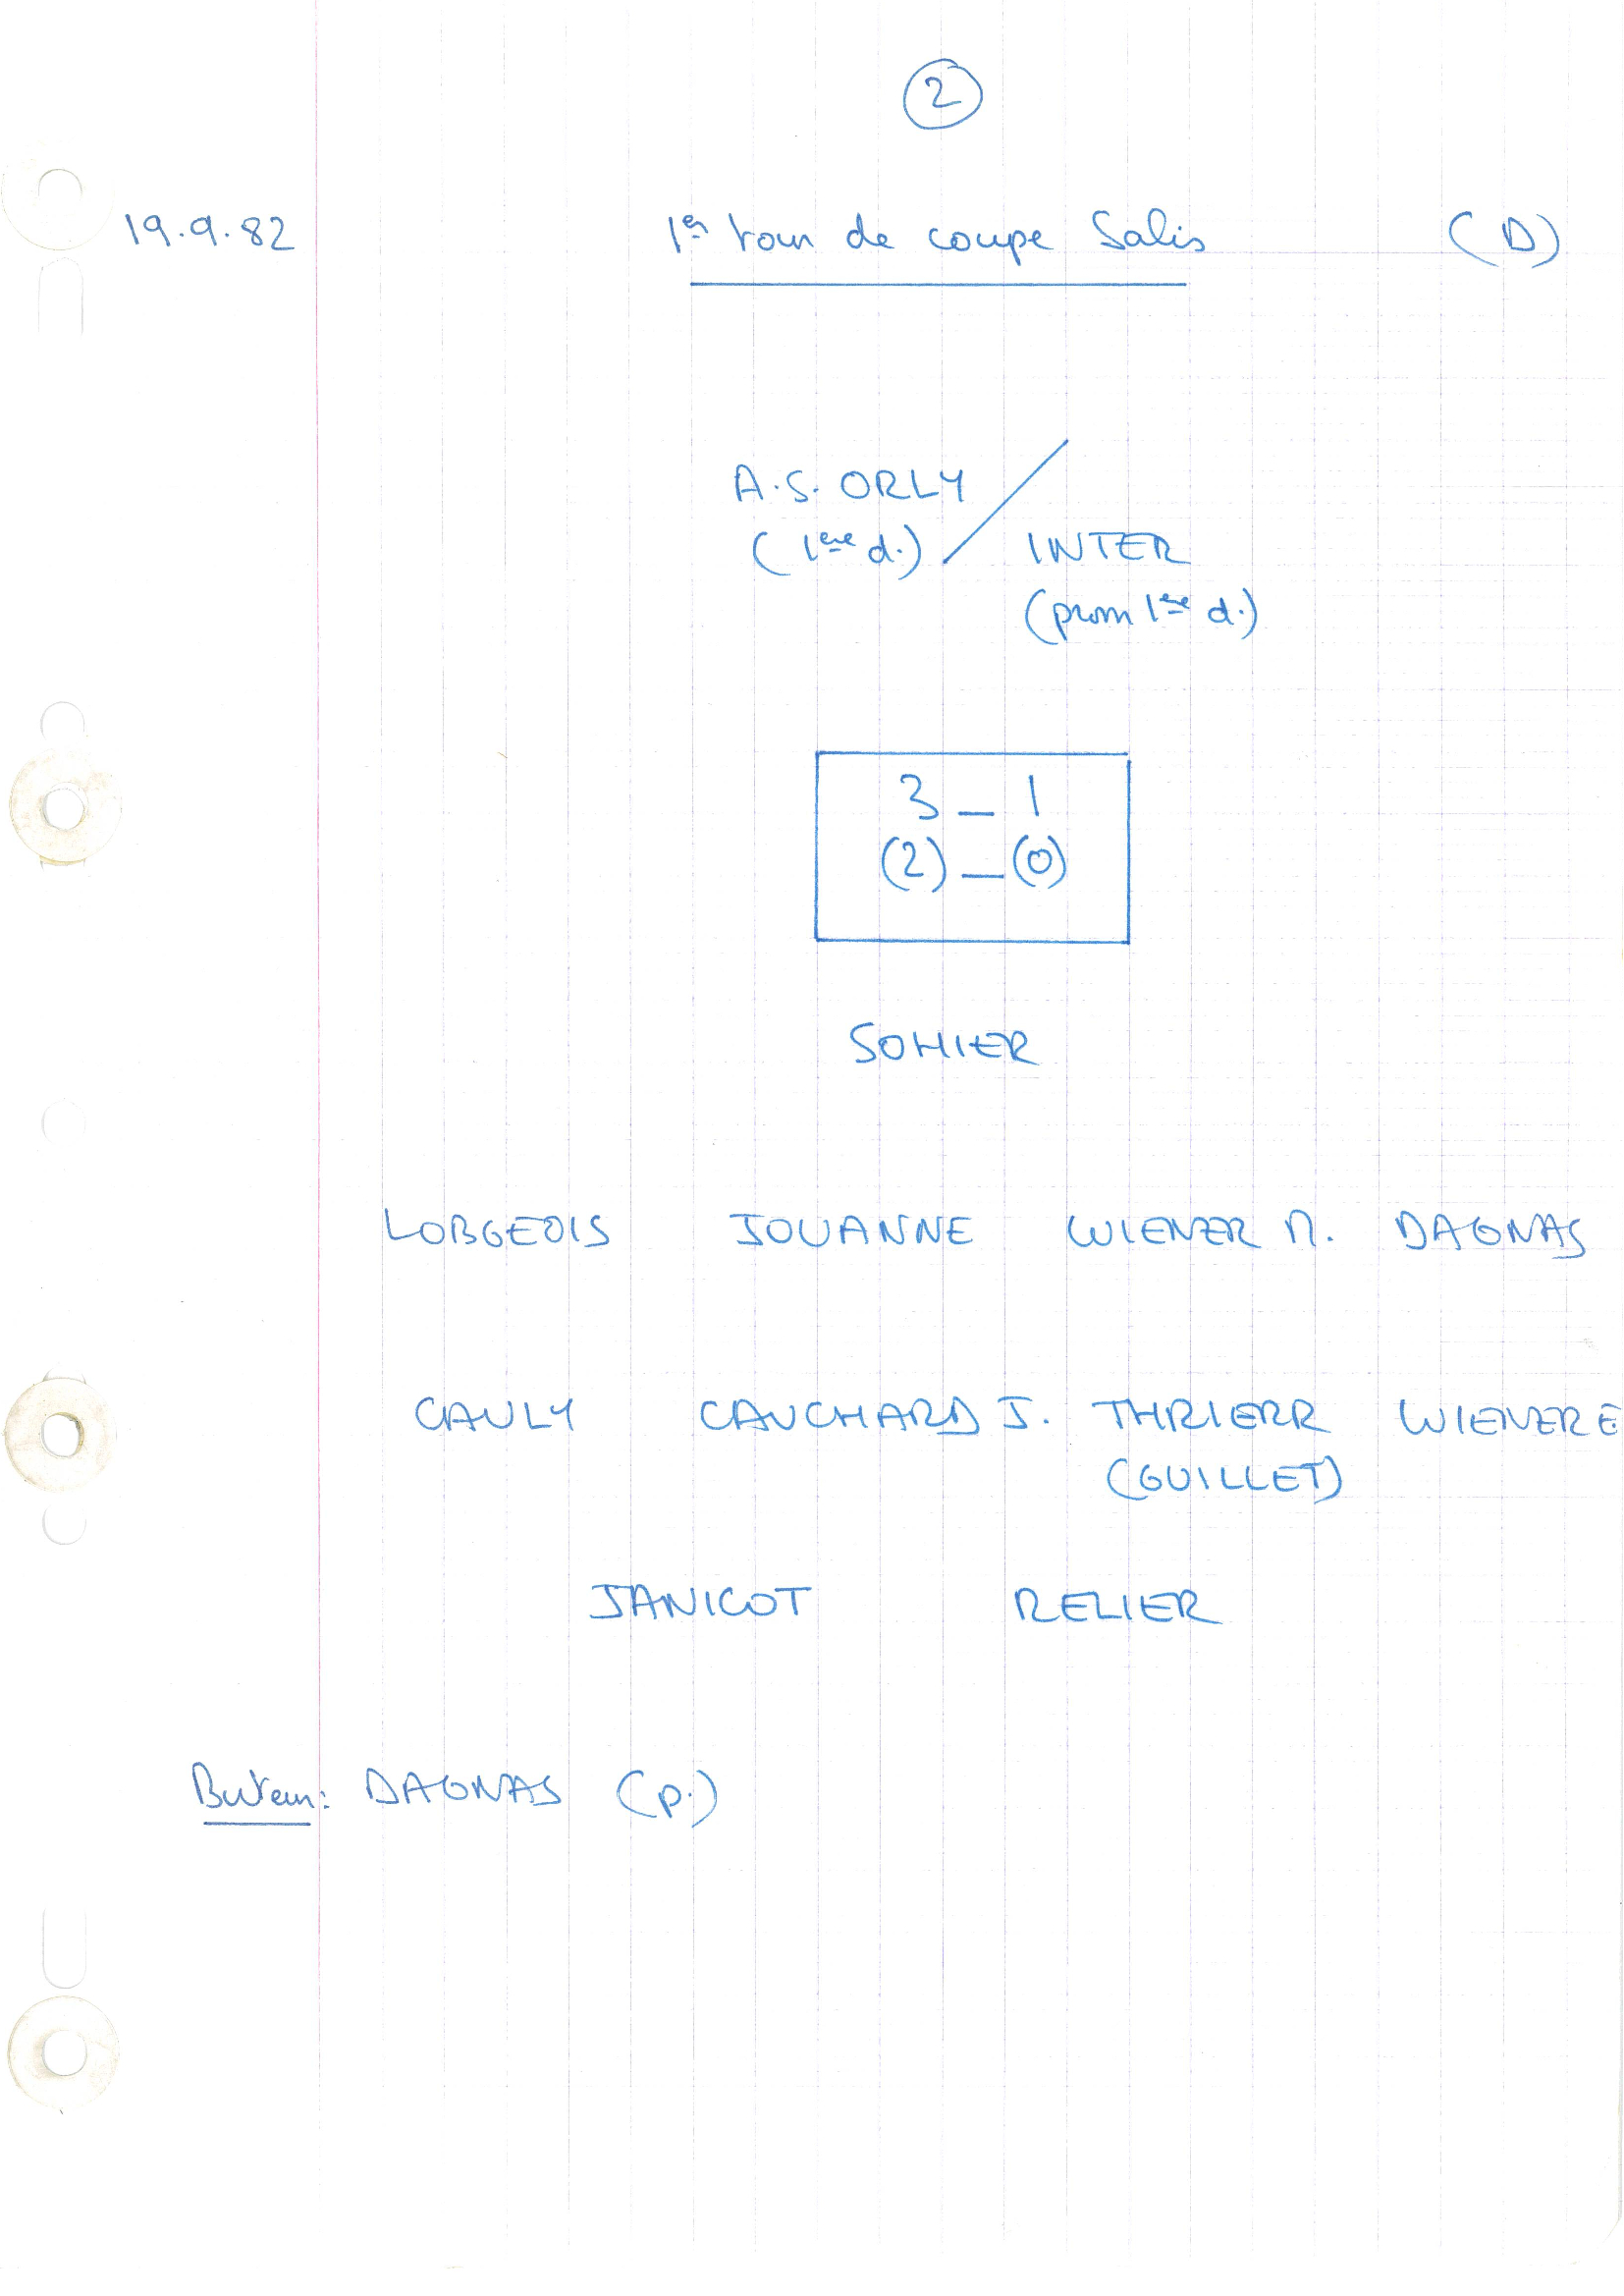 2
19.9.82 1er tour de coupe Salis (D)
A.S. ORLY
(1ère d.) / INTER
(prom 1ère d.)
3 _ 1
(2) _ (0)
SOHIER
LORGEOIS JOUANNE WIENER M. DAGNAS
CAULY CAUCHARD J. THRIERR WIENER E
(GUILLET)
JANICOT RELIER
Buteur: DAGNAS (p.)